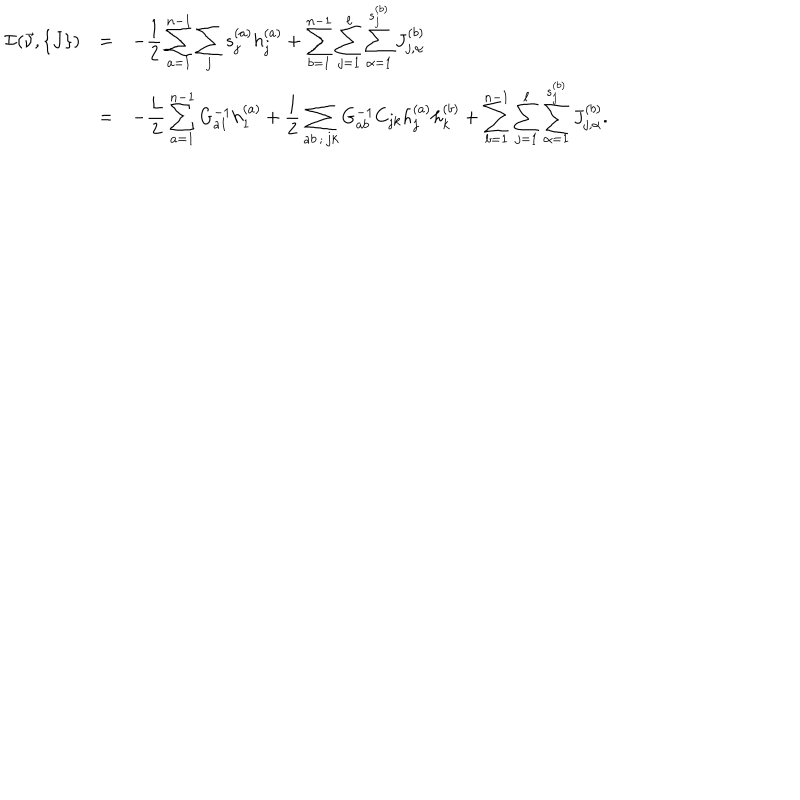 \mathcal{I}(\vec{\nu}, \{J\}) = -\frac{1}{2} \sum_{a=1}^{n-1} \sum_{j} s_j^{(a)} h_j^{(a)} + \sum_{b=1}^{n-1} \sum_{j=1}^{\ell} \sum_{\alpha=1}^{s_j^{(b)}} J_{j,\alpha}^{(b)}
= -\frac{L}{2} \sum_{a=1}^{n-1} G_{a1}^{-1} h_1^{(a)} + \frac{1}{2} \sum_{ab\,;\,jk} G_{ab}^{-1} C_{jk} h_j^{(a)} h_k^{(b)} + \sum_{b=1}^{n-1} \sum_{j=1}^{\ell} \sum_{\alpha=1}^{s_j^{(b)}} J_{j,\alpha}^{(b)}.